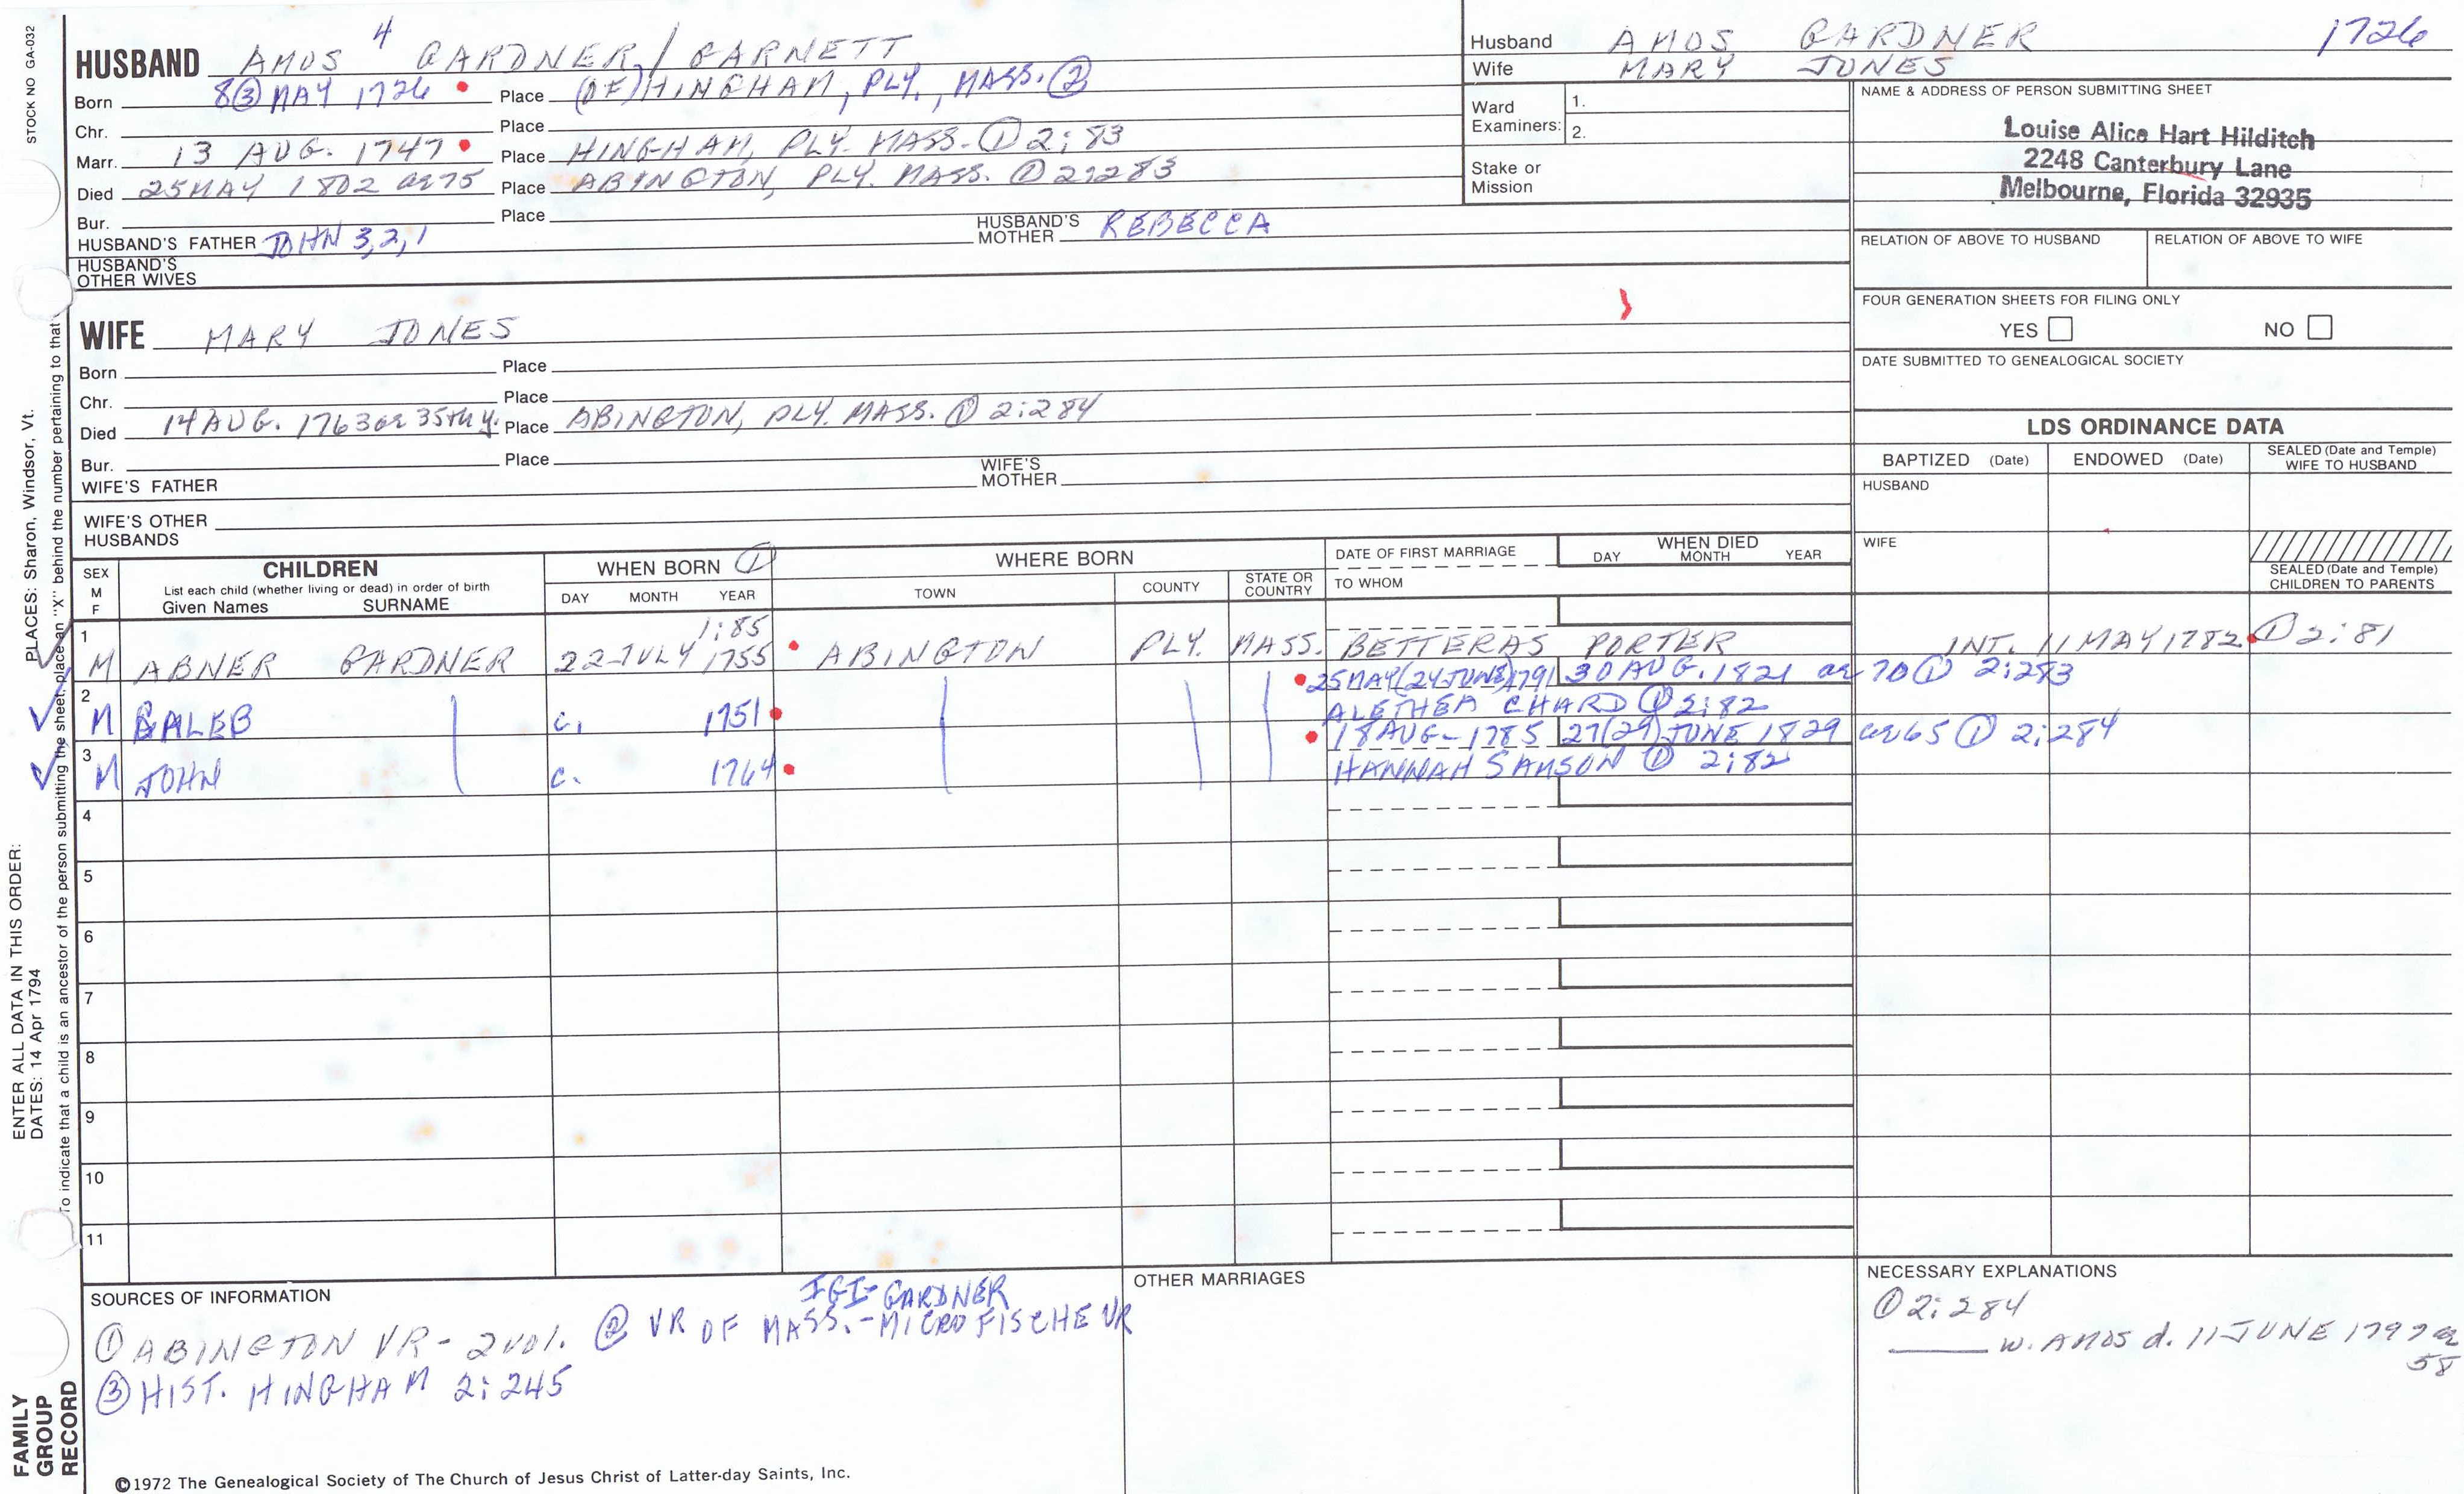 STOCK NO GA-032
PLACES: Sharon, Windsor, Vt.
ENTER ALL DATA IN THIS ORDER:
DATES: 14 Apr 1794
To indicate that a child is an ancestor of the person submitting the sheet, place an "X" behind the number pertaining to that
FAMILY
GROUP
RECORD
HUSBAND AMOS 4 GARDNER / GARNETT
Born 8 ③ MAY 1726 Place (OF) HINGHAM, PLY., MASS. ②
Chr. Place
Marr. 13 AUG. 1747 Place HINGHAM, PLY. MASS. ① 2:83
Died 25 MAY 1802 ae 75 Place ABINGTON, PLY. MASS. ① 2:283
Bur. Place
HUSBAND'S FATHER JOHN 3,2,1 HUSBAND'S MOTHER REBECCA
HUSBAND'S
OTHER WIVES
WIFE MARY JONES
Born Place
Chr. Place
Died 14 AUG. 1763 ae 35th y. Place ABINGTON, PLY. MASS. ① 2:284
Bur. Place
WIFE'S FATHER WIFE'S MOTHER
WIFE'S OTHER
HUSBANDS
Husband AMOS GARDNER 1726
Wife MARY JONES
Ward
Examiners: 1.
2.
Stake or
Mission
NAME & ADDRESS OF PERSON SUBMITTING SHEET
Louise Alice Hart Hilditch
2248 Canterbury Lane
Melbourne, Florida 32935
RELATION OF ABOVE TO HUSBAND RELATION OF ABOVE TO WIFE
FOUR GENERATION SHEETS FOR FILING ONLY
YES NO
DATE SUBMITTED TO GENEALOGICAL SOCIETY
LDS ORDINANCE DATA
BAPTIZED (Date) ENDOWED (Date) SEALED (Date and Temple)
WIFE TO HUSBAND
HUSBAND
WIFE
SEALED (Date and Temple)
CHILDREN TO PARENTS
SEX
M
F
CHILDREN
List each child (whether living or dead) in order of birth
Given Names SURNAME
WHEN BORN ①
DAY MONTH YEAR
WHERE BORN
TOWN COUNTY STATE OR COUNTRY
DATE OF FIRST MARRIAGE
TO WHOM
WHEN DIED
DAY MONTH YEAR
1 1:85
M ABNER GARDNER 22 JULY 1755 ABINGTON PLY. MASS. BETTERAS PORTER INT. 11 MAY 1782 ① 2:81
2 25 MAY (24 JUNE) 1791 30 AUG. 1821 ae 70 ① 2:283
M CALEB c. 1751 ALETHEA CHARD ① 2:82
3 18 AUG- 1785 27(29) JUNE 1829 ae 65 ① 2:284
M JOHN c. 1764 HANNAH SAMSON ① 2:82
4
5
6
7
8
9
10
11
SOURCES OF INFORMATION
IGI- GARDNER
① ABINGTON VR- 2 vol. ② VR OF MASS.-MICROFISCHE VR
③ HIST. HINGHAM 2:245
OTHER MARRIAGES
NECESSARY EXPLANATIONS
① 2:284
w. AMOS d. 11 JUNE 1797 ae
58
©1972 The Genealogical Society of The Church of Jesus Christ of Latter-day Saints, Inc.